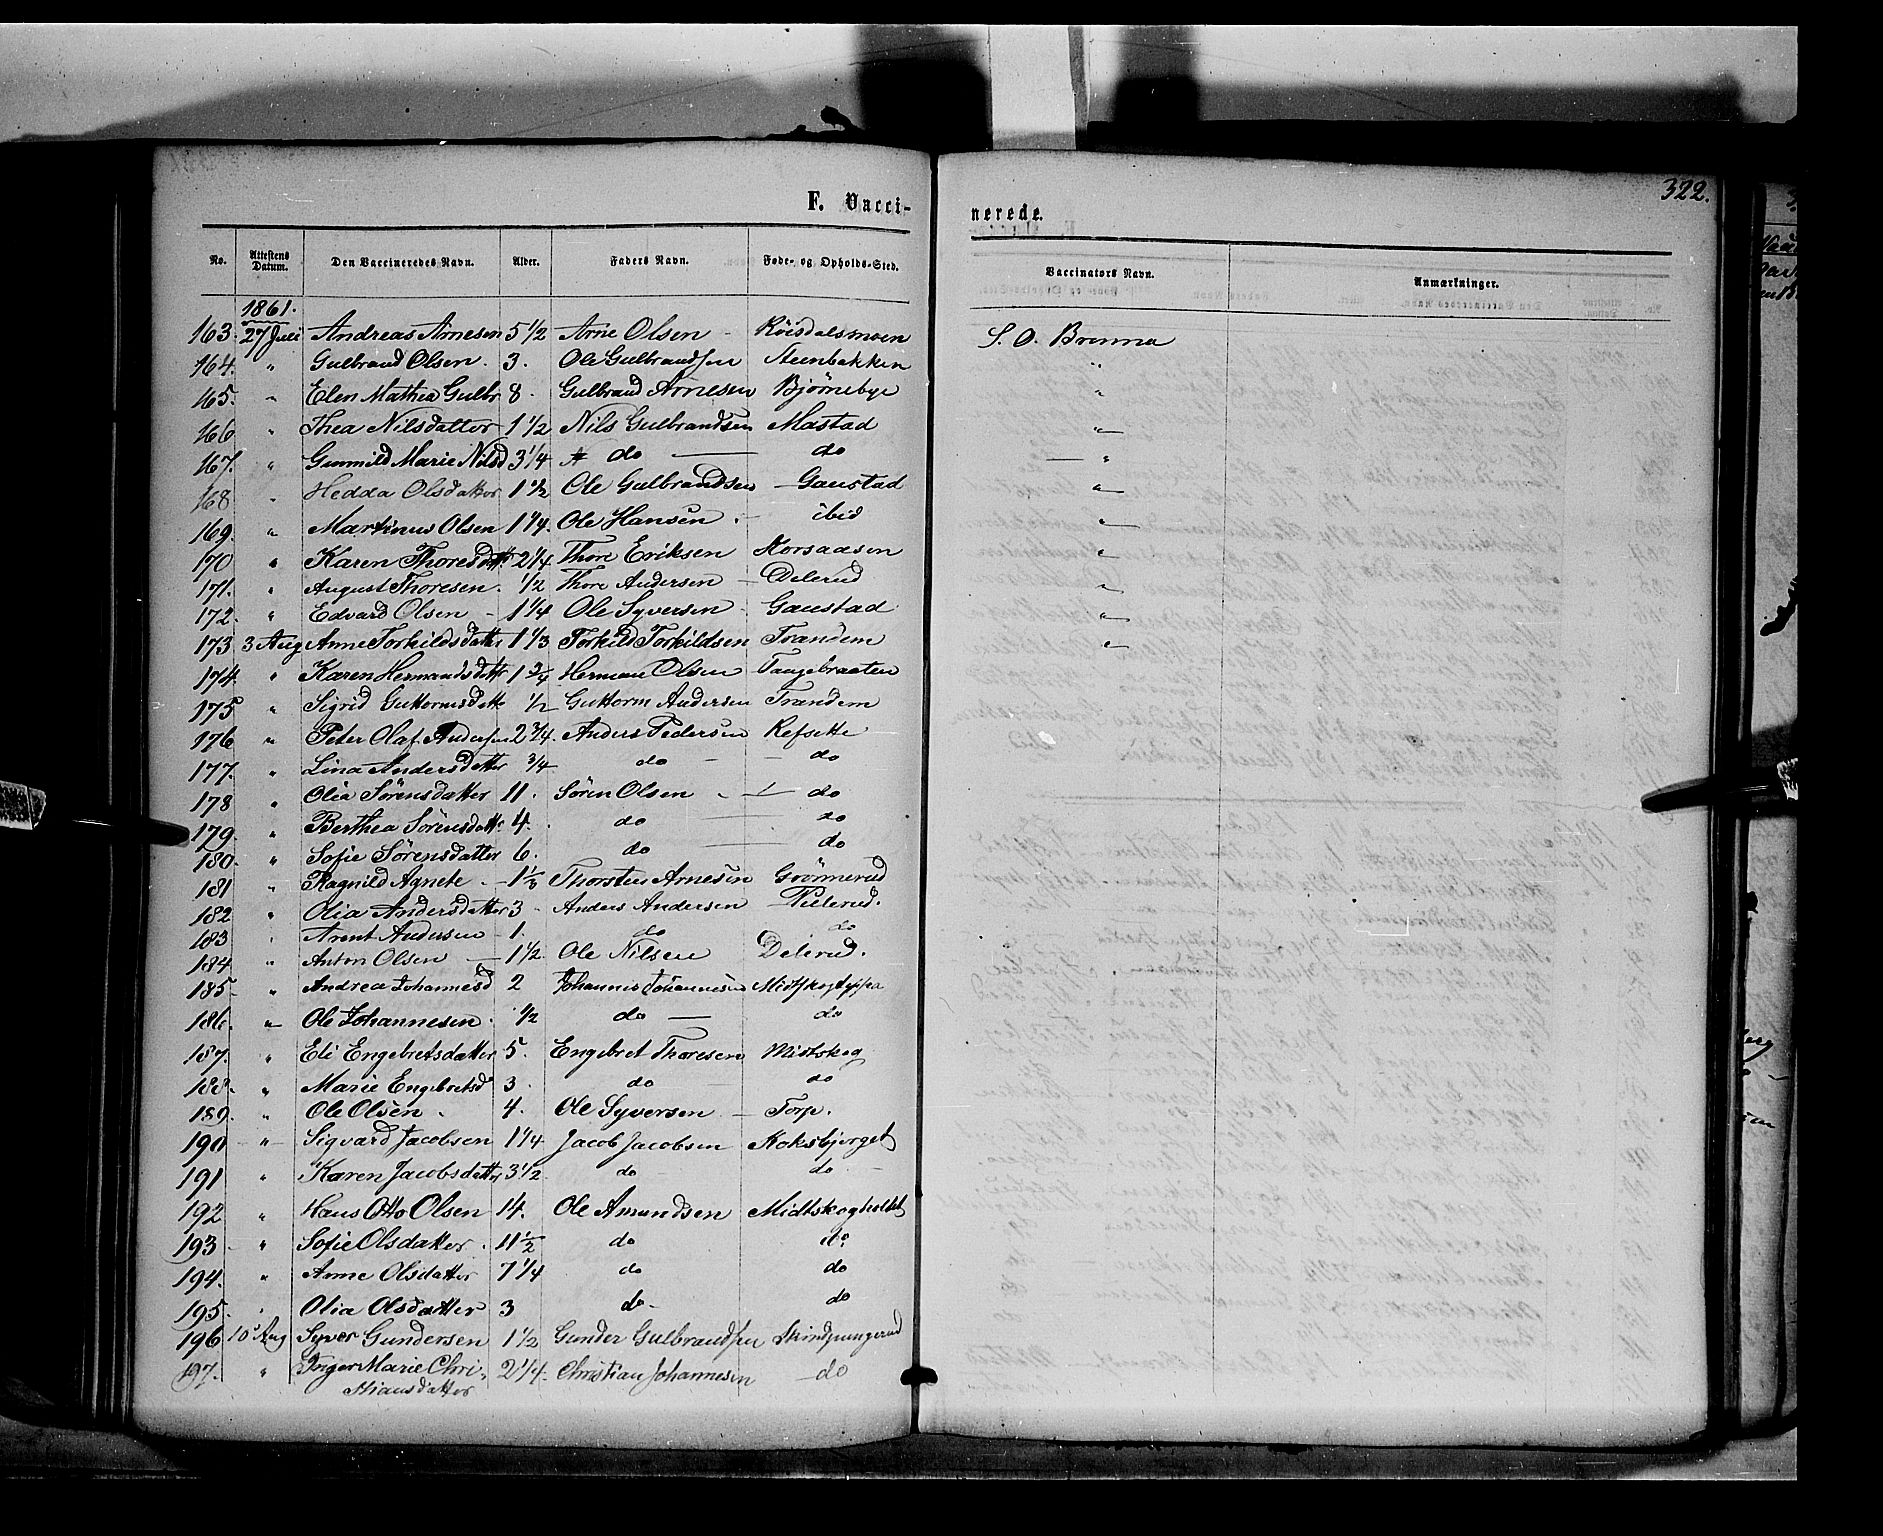 F. Vacci-
nerede.
322.
No. Attestens Datum. Den Vaccineredes Navn. Alder. Faders Navn. Føde- og Opholds-Sted. Vaccinators Navn. Anmærkninger.
1861.
163. 27 Juli Andreas Arnesen 5 1/2 Arne Olsen - Röisdalsmoen S. O. Brenna
164. " Gulbrand Olsen. 3. Ole Gulbrandsen Steenbakken "
165. " Elen Mathea Gulbr 8 - Gulbrand Arnesen Bjørnebye "
166 " Thea Nilsdatter - 1 1/2 Nils Gulbrandsen Mastad "
167. " Gunnild Marie Nilsd 3 1/4 do — do — "
168 " Hedda Olsdatter 1 1/2 Ole Gulbrandsen - Gaustad "
169. " Martinus Olsen 1 1/4. Ole Hansen. - ibid "
170 " Karen Thoresdtt. 2 1/4 Thore Eriksen Korsaasen "
171. " August Thoresen. 1/2 Thore Andersen - Delerud "
172. " Edvard Olsen - 1 1/4 Ole Syversen - Gaustad "
173 3 Aug Anne Torkildsdatter 1 1/3 Torkild Torkildsen Trandem "
174. " Karen Hermandsdatter 1 3/4 Herman Olsen Taagebraaten
175 " Sigrid Guttormsdatt 1/2 Guttorm Andersen Trandem
176 " Peter Olaf Andersen 2 3/4. Anders Pedersen Refsette
177. " Lina Andersdatter 3/4 do - - do
178 " Olia Sörensdatter 11. Sören Olsen - do
179. " Berthea Sörensdatt. 4. do — do
180. " Sofie Sørensdatter 6. do — do
181 " Ragnild Agnete. - 1 1/3 Thorsten Arnesen Grönnerud
182. " Olia Andersdatter 3 - Anders Andersen Pielerud.
183 " Arent Andersen - 1. do do
184 " Anton Olsen — 1 1/2. Ole Nilsen Delerud.
185- " Andrea Johannesd 2 Johannes Johannesen Midtskogteppa
186. " Ole Johannesen. 1/2 do — do
187. " Edi Engebretsdatter 5. Engebret Thoresen Midtskog
188. " Marie Engebretsd 3. do - do
189. " Ole Olsen. 4. Ole Syversen - Torp.
190 " Sigvard Jacobsen 1 1/4 Jacob Jacobsen Koksbjerget
191 " Karen Jacobsdatter 3 1/2. do - do -
192 " Hans Otto Olsen 14. Ole Amundsen Midtskogholdet
193 - " Sofie Olsdatter. 11 1/2 do do
194. " Anne Olsdatter 7 1/4 do do
195. " Olia Olsdatter 3 do- do
196 10 Aug Syver Gundersen 1 1/2 Gunder Gulbrandsen Skindpungerud
197. " Inger Marie Chri- 2 1/4. Christian Johannesen - do
stiansdatter